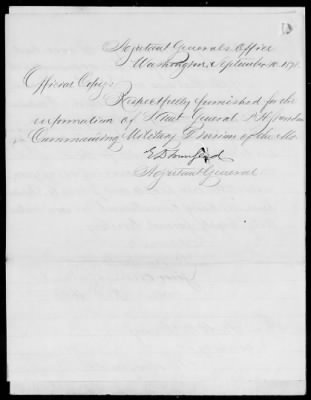 Adjutant General's Office
Washington, September 10. 187
Official Copy:
Respectfully furnished for the
information of Lieut General P. H. Sheridan
Commanding Military Division of the Mo.
E D Townsend
Adjutant General